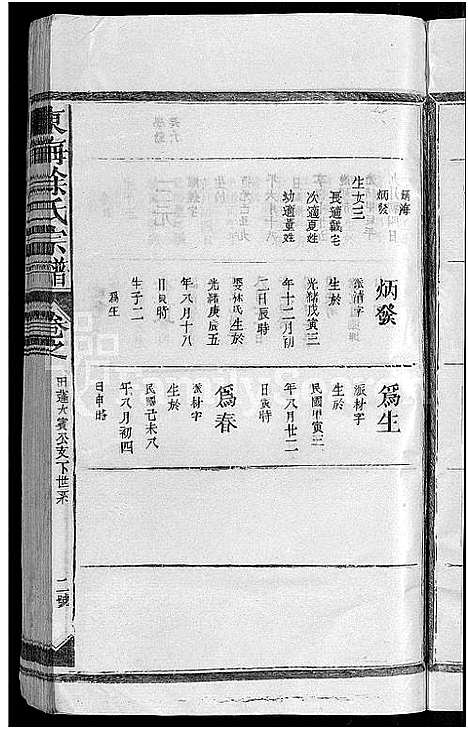 東海徐氏宗譜
卷之
田蓬大賓公支下世系
二號
鎮海
炳發
生女三
長適戴宅
次適夏姓
幼適董姓
炳發
派清字
生於
光緒戊寅三
年十二月初
二日辰時
娶林氏生於
光緒庚辰五
年八月十八
日寅時
生子二
為生
為生
派材字
生於
民國甲寅三
年八月廿二
日寅時
為春
派材字
生於
民國己未八
年八月初四
日申時